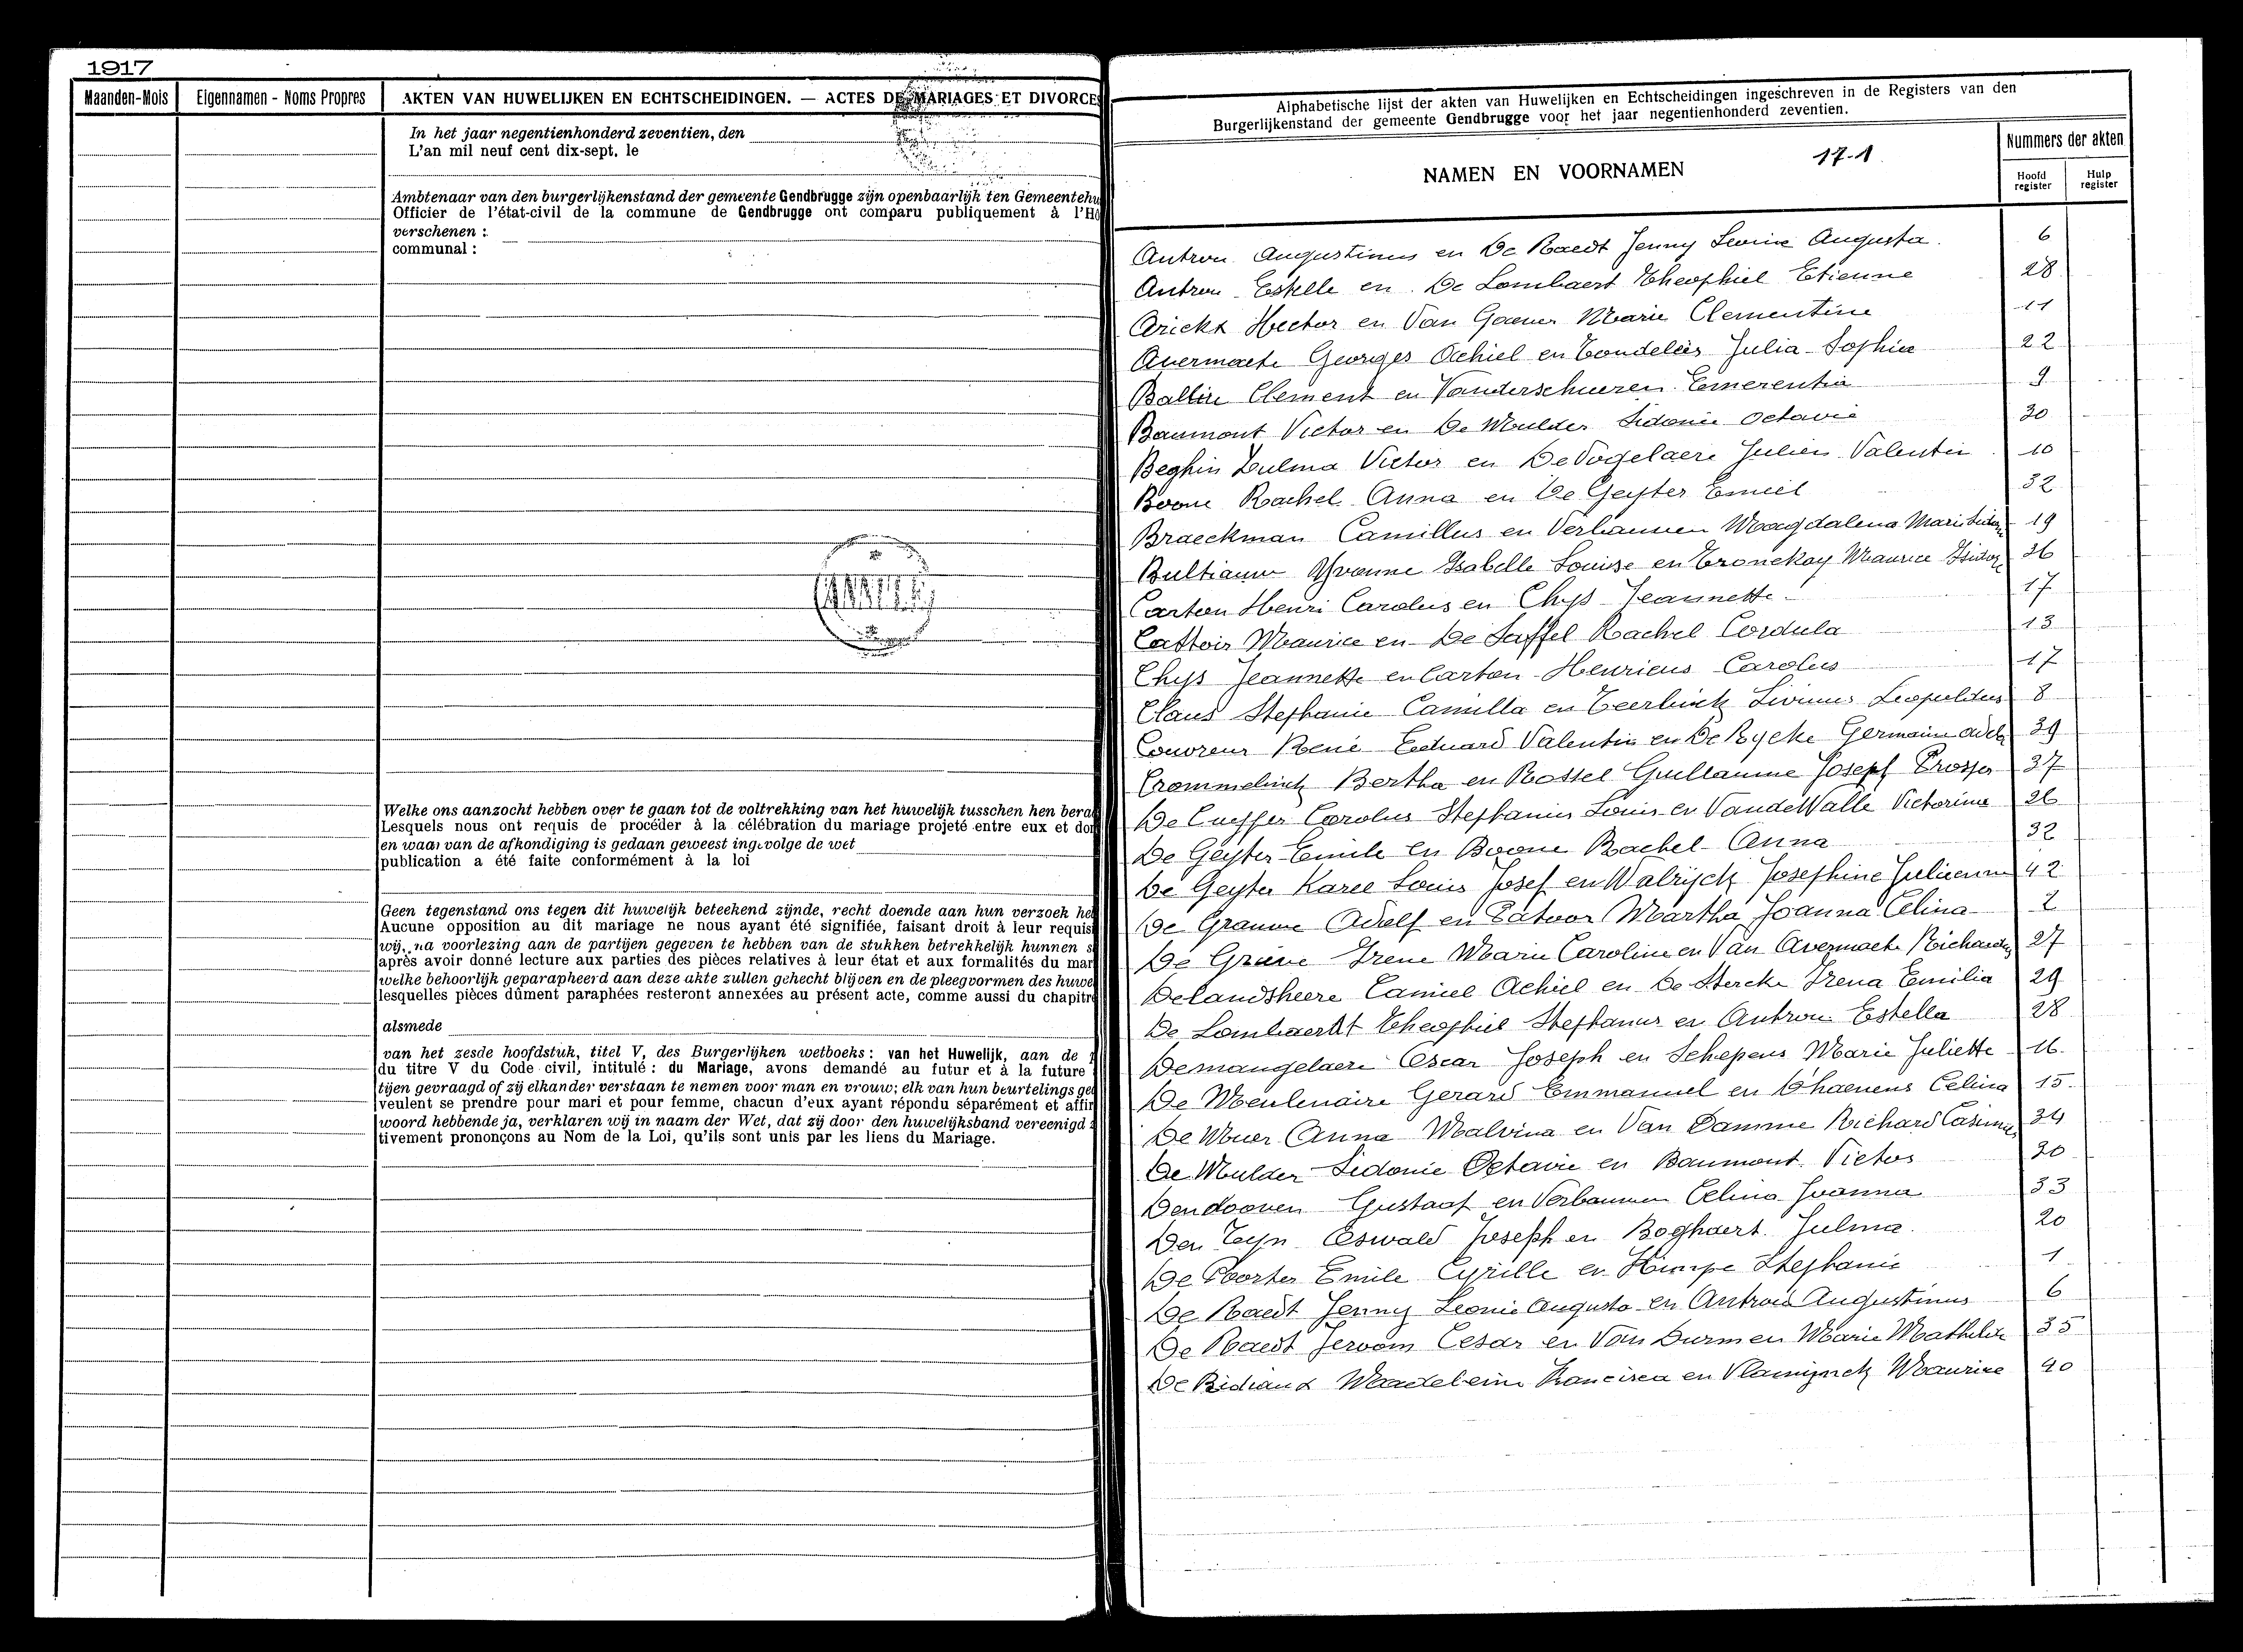 1917
Maanden-Mois
Eigennamen - Noms Propres
AKTEN VAN HUWELIJKEN EN ECHTSCHEIDINGEN. — ACTES DE MARIAGES ET DIVORCES
In het jaar negentienhonderd zeventien, den
L'an mil neuf cent dix-sept, le
Ambtenaar van den burgerlijkenstand der gemeente Gendbrugge zijn openbaarlijk ten Gemeentehu
Officier de l'état-civil de la commune de Gendbrugge ont comparu publiquement à l'Hô
verschenen :
communal :
Welke ons aanzocht hebben over te gaan tot de voltrekking van het huwelijk tusschen hen bera
Lesquels nous ont requis de procéder à la célébration du mariage projeté entre eux et don
en waarvan de afkondiging is gedaan geweest ingevolge de wet
publication a été faite conformément à la loi
Geen tegenstand ons tegen dit huwelijk beteekend zijnde, recht doende aan hun verzoek he
Aucune opposition au dit mariage ne nous ayant été signifiée, faisant droit à leur requis
wij, na voorlezing aan de partijen gegeven te hebben van de stukken betrekkelijk hunnen s
après avoir donné lecture aux parties des pièces relatives à leur état et aux formalités du mar
welke behoorlijk geparapheerd aan deze akte zullen gehecht blijven en de pleegvormen des huwe
lesquelles pièces dûment paraphées resteront annexées au présent acte, comme aussi du chapitre
alsmede
van het zesde hoofdstuk, titel V, des Burgerlijken wetboeks : van het Huwelijk, aan de
du titre V du Code civil, intitulé : du Mariage, avons demandé au futur et à la future
tijen gevraagd of zij elkander verstaan te nemen voor man en vrouw; elk van hun beurtelings ge
veulent se prendre pour mari et pour femme, chacun d'eux ayant répondu séparément et affir
woord hebbende ja, verklaren wij in naam der Wet, dat zij door den huwelijksband vereenigd
tivement prononçons au Nom de la Loi, qu'ils sont unis par les liens du Mariage.
Alphabetische lijst der akten van Huwelijken en Echtscheidingen ingeschreven in de Registers van den
Burgerlijkenstand der gemeente Gendbrugge voor het jaar negentienhonderd zeventien.
NAMEN EN VOORNAMEN
17-1
Nummers der akten
Hoofd register
Hulp register
Antrou Augustinus en De Raedt Jenny Leonie Augusta. 6
Antrou Estelle en De Lombaert Theophiel Etienne 28
Arickx Hector en Van Marie Clementine 11
Avermaete Georges Achiel en Julia Sophia 22
Clement en Vanderschueren Emerentia 9
Baumont Victor en De Mulder Sidonie Octavie 30
Beghin Zulma Victor en De Vogelaere Julien Valentin 10
Boone Rachel Anna en De Geyter Emiel 32
Braeckman Camillus en Verbauwen Magdalena Marie 19
Yvonne Isabelle Louise en Maurice Isidor 36
Carton Henri Carolus en Chys Jeannette 17
Cattoir Maurice en De Saffel Rachel Cordula 13
Chys Jeannette en Carton Henricus Carolus 17
Claus Stephanie Camilla en Teerlinck Livinus Leopoldus 8
Couvreur René Eduard Valentin en De Rycke Germaine 39
Crommelinck Bertha en Rossel Guillaume Joseph Prosper 37
De Cuyper Carolus Stephanus Louis en Vande Walle Victorine 26
De Geyter Emile en Boone Rachel Anna 32
De Geyter Karel Louis Josef en Walrijck Josephine Julienne 42
De Graeuwe Adolf en Martha Joanna Celina 2
De Grieve Irene Marie Caroline en Van Avermaete Richard 27
Delandsheere Camiel Achiel en De Stercke Irena Emilia 29
De Lombaerdt Theophiel Stephanus en Antrou Estella 28
Demangelaere Oscar Joseph en Schepens Marie Juliette 16.
De Meulenaire Gerard Emmanuel en D'haenens Celina 15.
De Muer Anna Malvina en Van Damme Richard Casimir 34
De Mulder Sidonie Octavie en Baumont Victor 30
Dendooven Gustaaf en Verbauwen Celina Joanna 33
Den Teyn Oswald Joseph en Boghaert Julma. 20
De Poorter Emile Cyrille en Himpe Stephanie 1
De Raedt Jenny Leonie Augusta en Antrou Augustinus 6
De Raedt Jeroom Cesar en Van Durmen Marie Mathilde 35
De Francisca en Vlamijnck Maurice 40